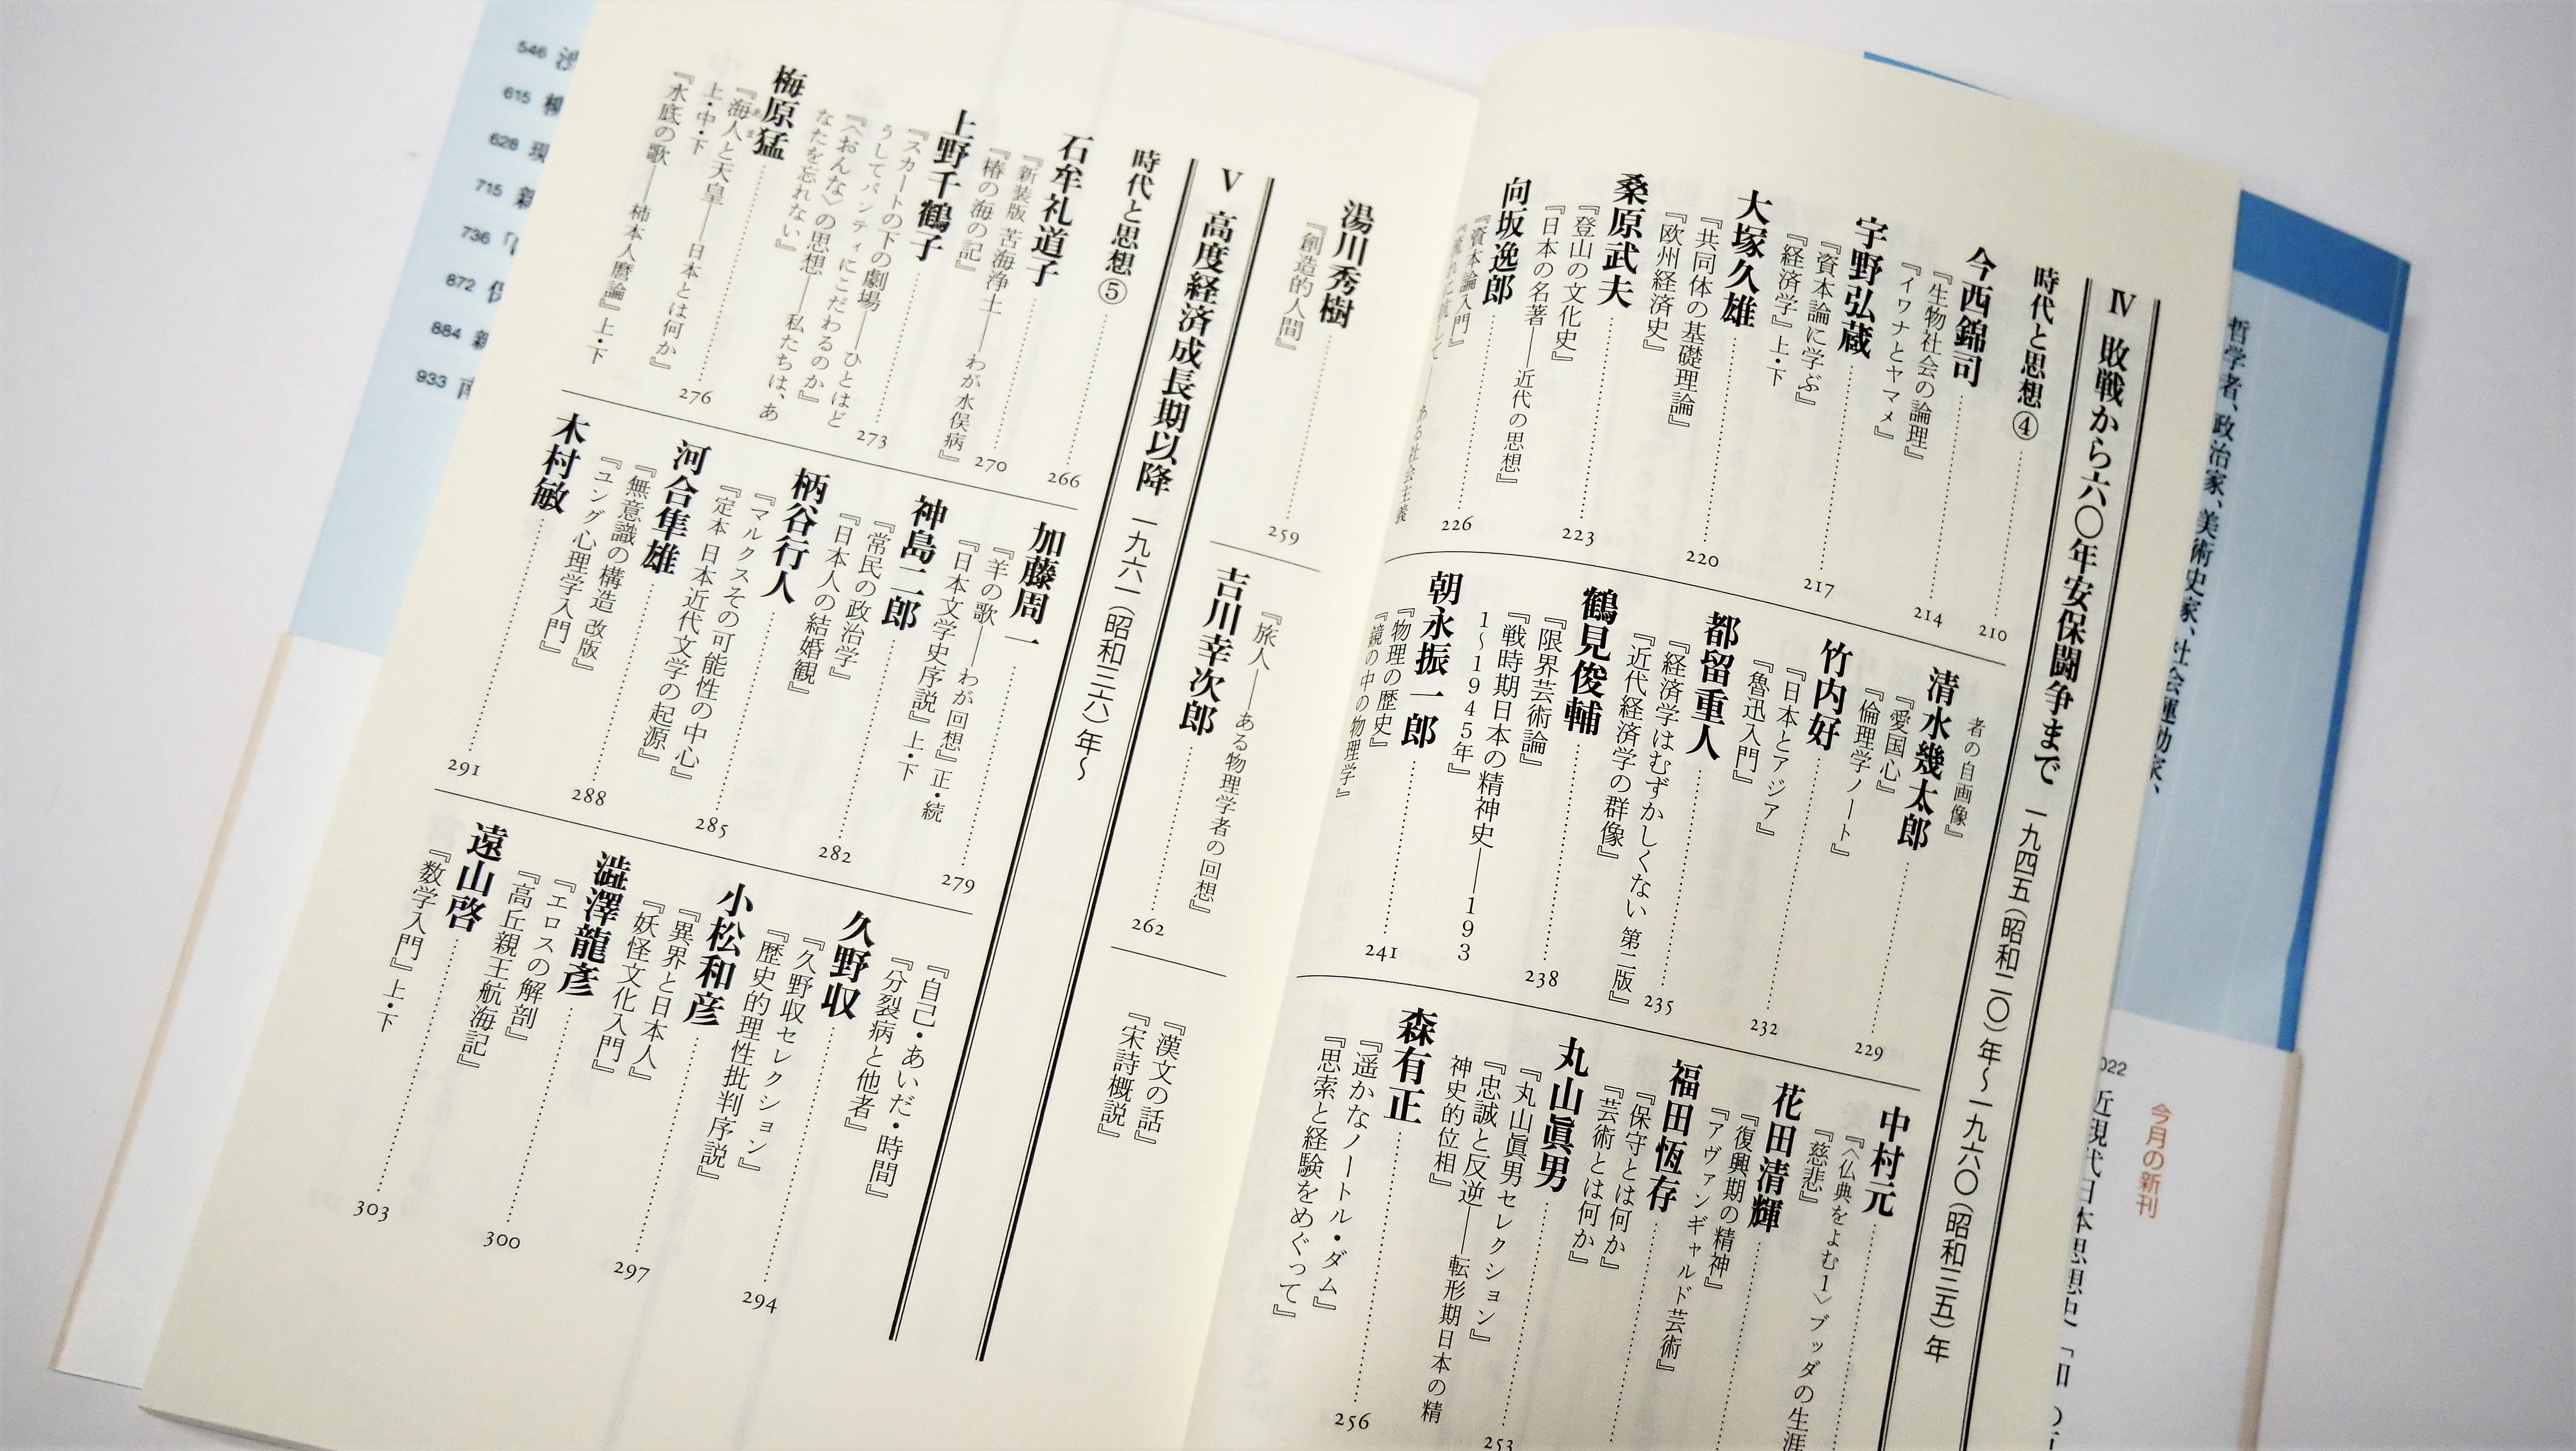 哲学者、政治家、美術史家、社会運動家、
今月の新刊
022
近現代日本思想史「知」の
Ⅳ 敗戦から六〇年安保闘争まで 一九四五(昭和二〇)年〜一九六〇(昭和三五)年
時代と思想④
210
今西錦司
214
『生物社会の論理』
『イワナとヤマメ』
宇野弘蔵
217
『資本論に学ぶ』
『経済学』上・下
大塚久雄
220
『共同体の基礎理論』
『欧州経済史』
桑原武夫
223
『登山の文化史』
『日本の名著――近代の思想』
向坂逸郎
226
『資本論入門』
『流れに抗して――ある社会主義
者の自画像』
清水幾太郎
229
『愛国心』
『倫理学ノート』
竹内好
232
『日本とアジア』
『魯迅入門』
都留重人
235
『経済学はむずかしくない 第二版』
『近代経済学の群像』
鶴見俊輔
238
『限界芸術論』
『戦時期日本の精神史――193
1〜1945年』
朝永振一郎
241
『物理の歴史』
『鏡の中の物理学』
中村元
『〈仏典をよむ1〉ブッダの生涯
『慈悲』
花田清輝
『復興期の精神』
『アヴァンギャルド芸術』
福田恆存
『保守とは何か』
『芸術とは何か』
丸山眞男
253
『丸山眞男セレクション』
『忠誠と反逆――転形期日本の精
神史的位相』
森有正
256
『遥かなノートル・ダム』
『思索と経験をめぐって』
湯川秀樹
259
『創造的人間』
『旅人――ある物理学者の回想』
吉川幸次郎
262
『漢文の話』
『宋詩概説』
Ⅴ 高度経済成長期以降 一九六一(昭和三六)年〜
時代と思想⑤
266
石牟礼道子
270
『新装版 苦海浄土――わが水俣病』
『椿の海の記』
上野千鶴子
273
『スカートの下の劇場――ひとはど
うしてパンティにこだわるのか』
『〈おんな〉の思想――私たちは、あ
なたを忘れない』
梅原猛
276
『海人と天皇――日本とは何か』
上・中・下
『水底の歌――柿本人麿論』上・下
加藤周一
279
『羊の歌――わが回想』正・続
『日本文学史序説』上・下
神島二郎
282
『常民の政治学』
『日本人の結婚観』
柄谷行人
285
『マルクスその可能性の中心』
『定本 日本近代文学の起源』
河合隼雄
288
『無意識の構造 改版』
『ユング心理学入門』
木村敏
291
『自己・あいだ・時間』
『分裂病と他者』
久野収
294
『久野収セレクション』
『歴史的理性批判序説』
小松和彦
297
『異界と日本人』
『妖怪文化入門』
澁澤龍彦
300
『エロスの解剖』
『高丘親王航海記』
遠山啓
303
『数学入門』上・下
546
615
628
715
736
872
884
933